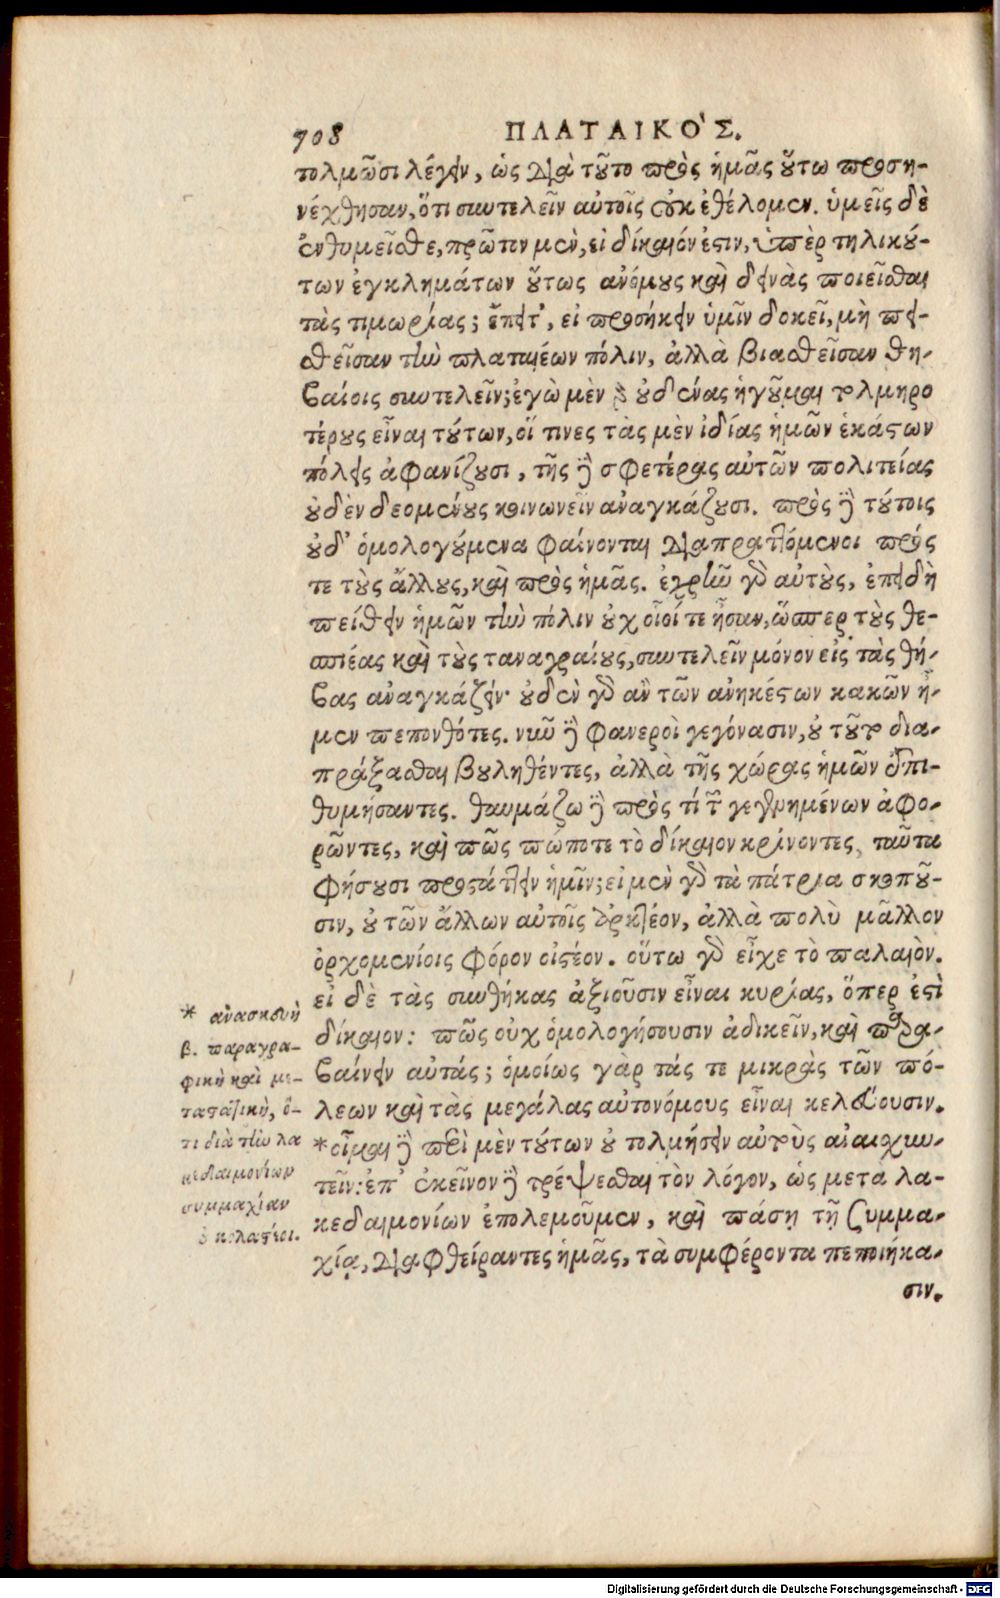 708
ΠΛΑΤΑΙΚΟ'Σ.
τολμῶσι λέγειν, ὡς διὰ τοῦτο πρὸς ἡμᾶς οὕτω προση-
νέχθησαν, ὅτι συντελεῖν αὐτοῖς οὐκ ἐθέλομεν. ὑμεῖς δὲ
ἐνθυμεῖσθε, πρῶτον μὲν, εἰ δίκαιόν ἐστιν, ὑπὲρ τηλικού-
των ἐγκλημάτων οὕτως ἀνόμους καὶ δεινὰς ποιεῖσθαι
τὰς τιμωρίας; ἔπειτ', εἰ προσήκειν ὑμῖν δοκεῖ, μὴ πει-
σθεῖσαν τὴν πλαταιέων πόλιν, ἀλλὰ βιασθεῖσαν θη-
βαίοις συντελεῖν; ἐγὼ μὲν γὰρ οὐδένας ἡγοῦμαι τολμηρο
τέρους εἶναι τούτων, οἵ τινες τὰς μὲν ἰδίας ἡμῶν ἑκάστων
πόλεις ἀφανίζουσι, τῆς δὲ σφετέρας αὐτῶν πολιτείας
οὐδὲν δεομένους κοινωνεῖν ἀναγκάζουσι. πρὸς δὲ τούτοις
οὐδ' ὁμολογούμενα φαίνονται διαπραττόμενοι πρός
τε τοὺς ἄλλους, καὶ πρὸς ἡμᾶς. ἐχρῆν γὰρ αὐτοὺς, ἐπειδὴ
πείθειν ἡμῶν τὴν πόλιν οὐχ οἷοί τε ἦσαν, ὥσπερ τοὺς θε-
σπιέας καὶ τοὺς ταναγραίους, συντελεῖν μόνον εἰς τὰς θή-
βας ἀναγκάζειν· οὐδὲν γὰρ ἂν τῶν ἀνηκέστων κακῶν ἦ-
μεν πεπονθότες. νῦν δὲ φανεροὶ γεγόνασιν, οὐ τοῦτο δια-
πράξασθαι βουληθέντες, ἀλλὰ τῆς χώρας ἡμῶν ἐπι-
θυμήσαντες. θαυμάζω δὲ πρὸς τί τῶν γεγενημένων ἀφο-
ρῶντες, καὶ πῶς πώποτε τὸ δίκαιον κρίνοντες, ταῦτα
φήσουσι προστάττειν ἡμῖν; εἰ μὲν γὰρ τὰ πάτρια σκοποῦ-
σιν, οὐ τῶν ἄλλων αὐτοῖς ἀρκτέον, ἀλλὰ πολὺ μᾶλλον
ὀρχομενίοις φόρον οἰστέον. οὕτω γὰρ εἶχε τὸ παλαιὸν.
εἰ δὲ τὰς συνθήκας ἀξιοῦσιν εἶναι κυρίας, ὅπερ ἐστὶ
δίκαιον: πῶς οὐχ ὁμολογήσουσιν ἀδικεῖν, καὶ παρα-
βαίνειν αὐτάς; ὁμοίως γὰρ τάς τε μικρὰς τῶν πό-
λεων καὶ τὰς μεγάλας αὐτονόμους εἶναι κελεύουσιν.
*οἶμαι δὲ περὶ μὲν τούτων οὐ τολμήσειν αὐτοὺς ἀναισχυν-
τεῖν: ἐπ' ἐκεῖνον δὲ τρέψεσθαι τὸν λόγον, ὡς μετα λα-
κεδαιμονίων ἐπολεμοῦμεν, καὶ πάσῃ τῇ ξυμμα-
χίᾳ, διαφθείραντες ἡμᾶς, τὰ συμφέροντα πεποιήκα-
σιν.
* ἀνασκευὴ
β. παραγρα-
φικὴ καὶ με-
ταστατικὴ, ὅ-
τι διὰ τὴν λα
κεδαιμονίων
συμμαχίαν
Digitalisierung gefördert durch die Deutsche Forschungsgemeinschaft - DFG